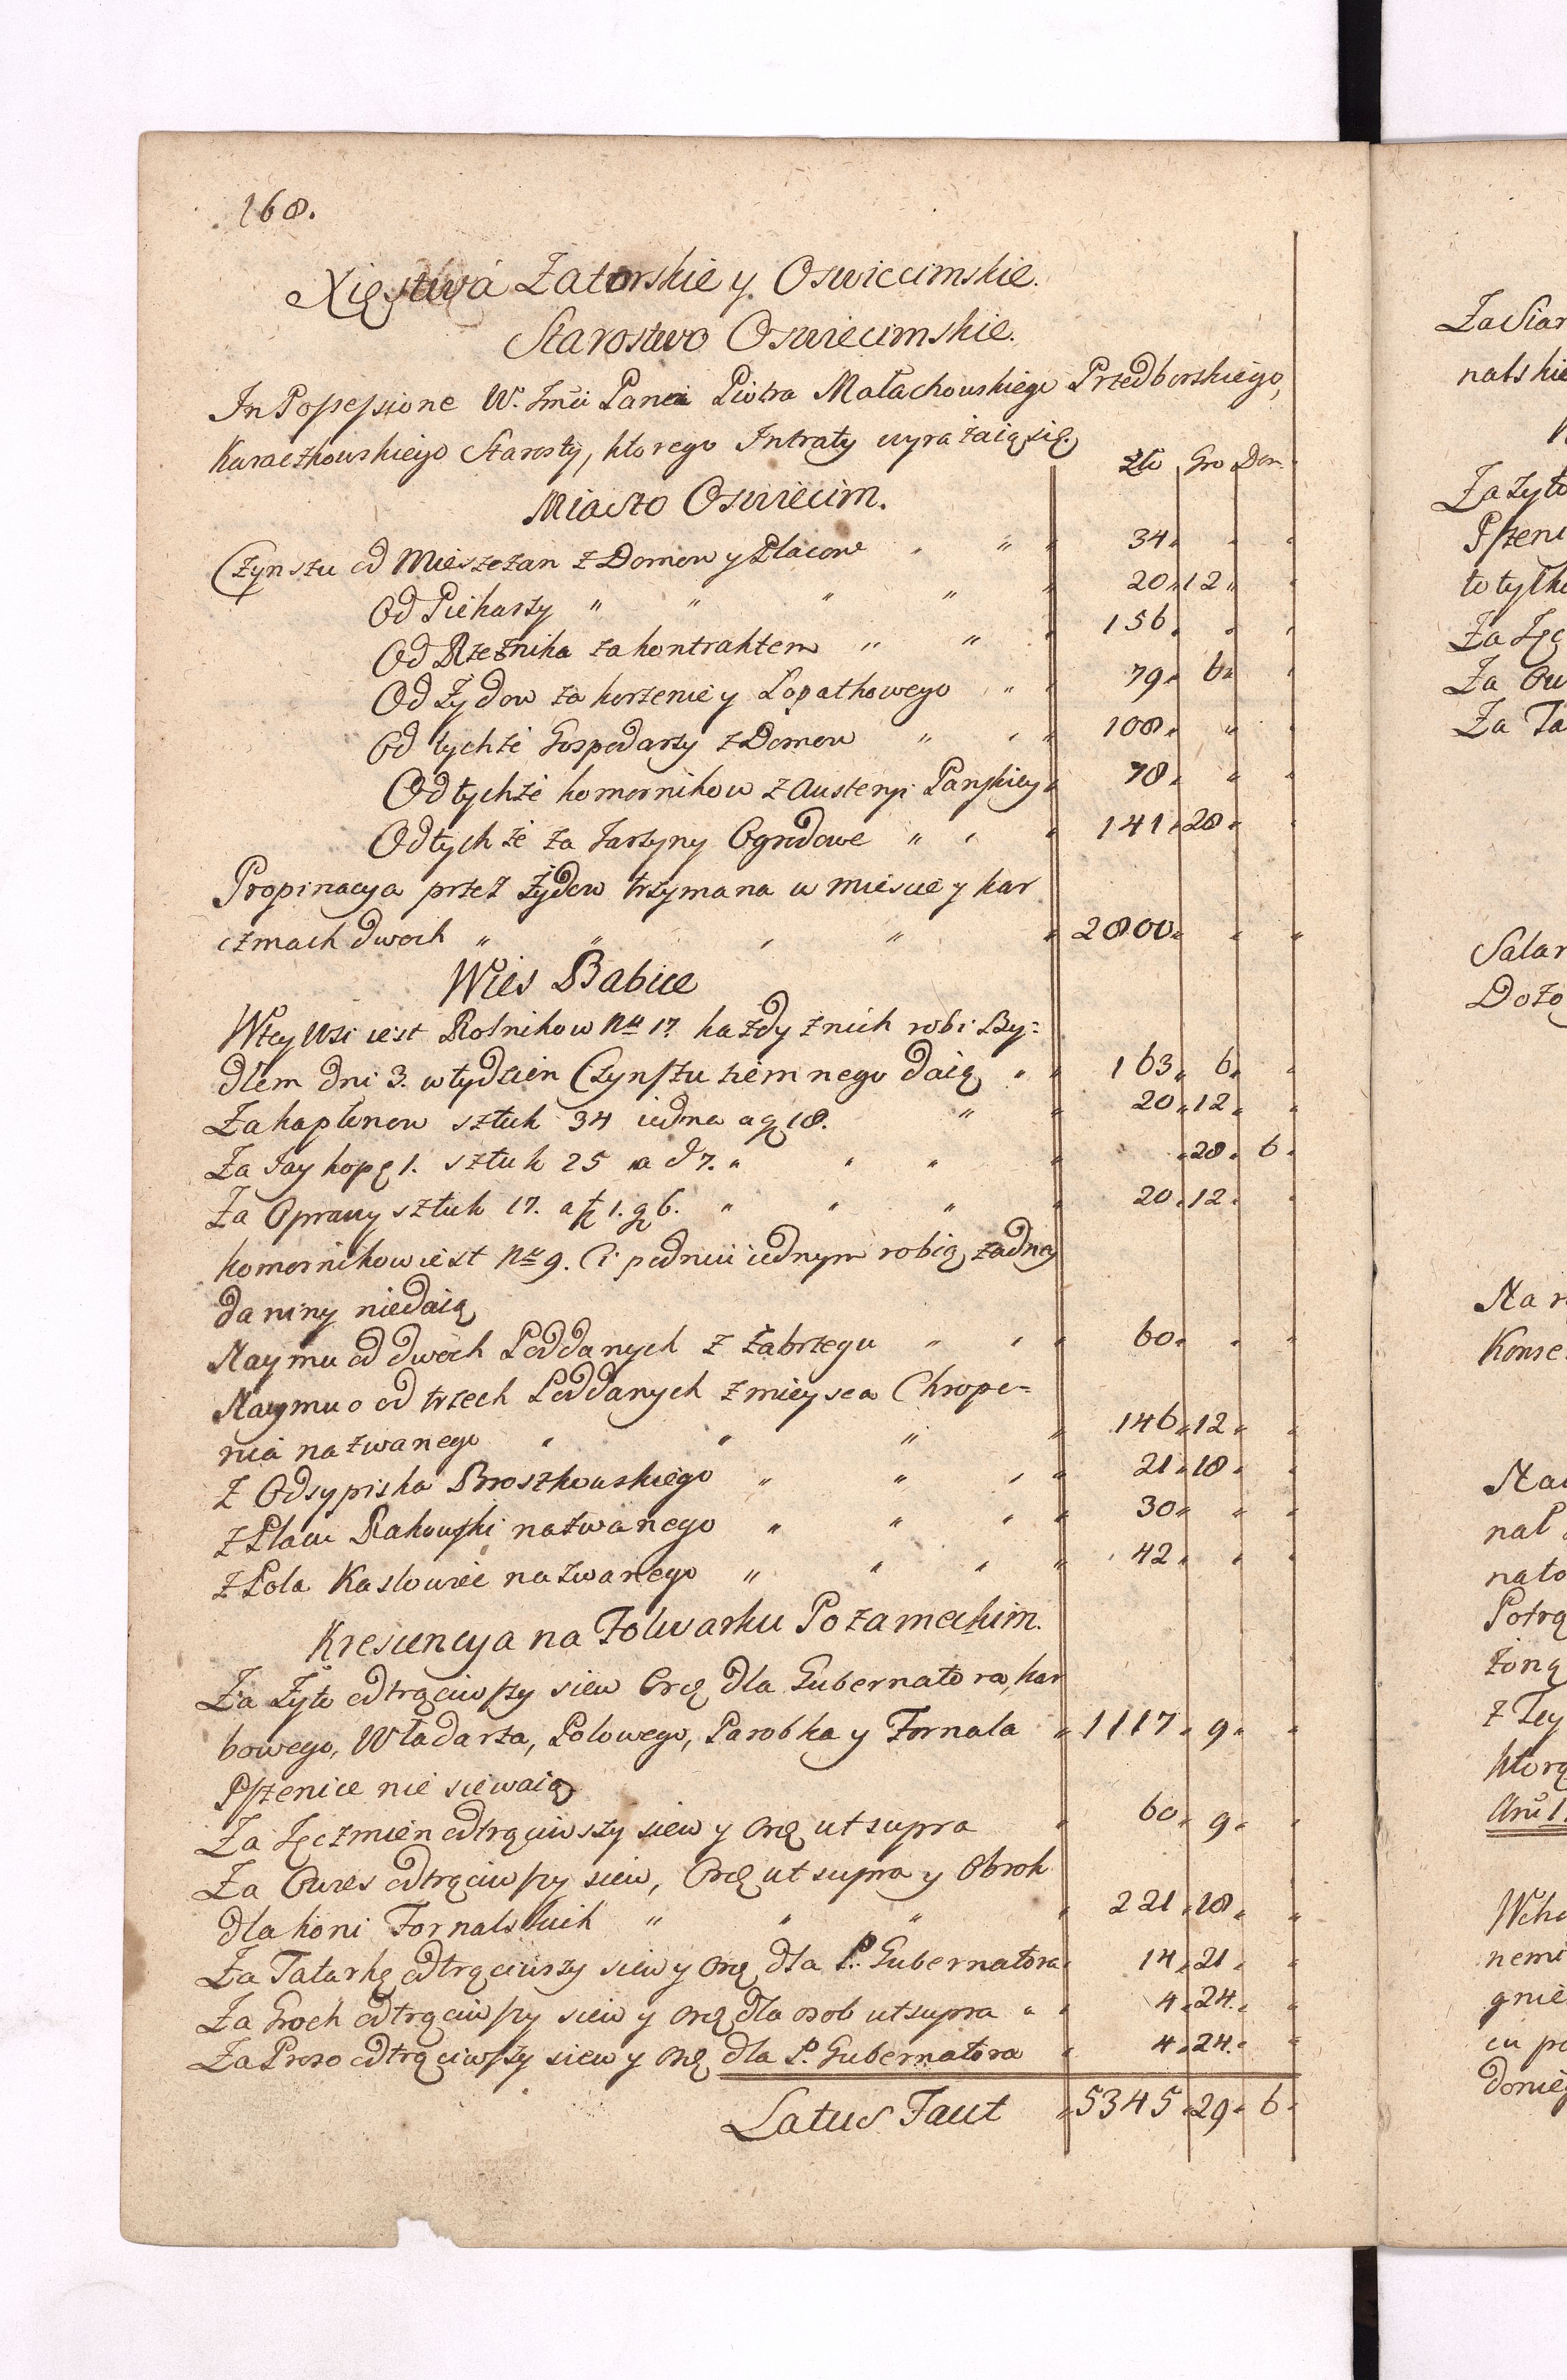 168.
Xięstwa Zatorskie y Oswiecimskie.
Starostwo Oswiecimskie.
In Possessione W. Jmći Pana Piotra Małachowskiego Przedborskiego,
Starosty, ktorego Intraty wyrażaią się.
Zło Gro Den.
Miasto Oswiecim.
Czynszu od Mieszczan z Domow y Placow " " 34 " "
Od Piekarzy " " " " 20 12 "
Od Rzeźnika za kontraktem " " 156 " "
Od Żydow za korzenie y Łopatkowego " " 79 6 "
Od tychże Gospodarzy z Domow " " 108 " "
Od tychże komornikow z Austeryi Panskiey 78 " "
Od tychże za Jarzyny Ogrodowe " " 141 28 "
Propinacya przez Żydow trzymana w miescie y kar
czmach dwoch " " " " 2800 " "
Wies Babice
W tey Wsi iest Rolnikow Nº 17 każdy z nich robi By=
dlem dni 3. w tydzien Czynszu ziemnego daią " 163 6 "
Za kapłonow sztuk 34 iedna a g 18. " 20 12 "
Za Jay kopę 1. sztuk 25 a d 7. " " " 28 6
Za Oprawy sztuk 17. a f 1. g 6. " " " 20 12 "
komornikow iest Nº 9. Ci po dniu iednym robią żadney
daniny niedaią
Naymu od dwoch Poddanych z Zabrzegu " " 60 " "
Naymu od trzech Poddanych z mieysca Chrope=
nia nazwanego " " " 146 12 "
Z Odsypiska Broszkowskiego " " " 21 18 "
z Pławu Rakowski nazwanego " " " 30 " "
z Pola Kaslowiec nazwanego " " " 42 " "
Krescencya na Folwarku Pozameckim.
Za Żyto odtrąciwszy siew Orą dla Gubernatora, kar
bowego, Władarza, Polowego, Parobka y Fornala " 1117 9 "
Pszenice nie siewaią
Za Jęczmien odtrąciwszy siew y Orą ut supra 60 9 "
Za Owies odtrąciwszy siew, Orą ut supra y Obrok
dla koni Fornalskich " " " 221 18 "
Za Tatarkę odtrąciwszy siew y Orą dla P. Gubernatora 14 21 "
Za Groch odtrąciwszy siew y Orą dla osob ut supra " 4 24 "
Za Proso odtrąciwszy siew y Orą dla P. Gubernatora 4 24 "
Latus Facit 5345 29 6